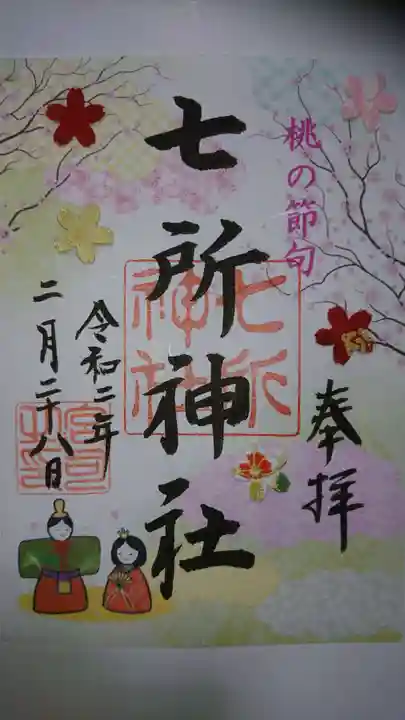 桃の節句
奉拝
七所神社
七所
神社
令和二年
二月二十八日